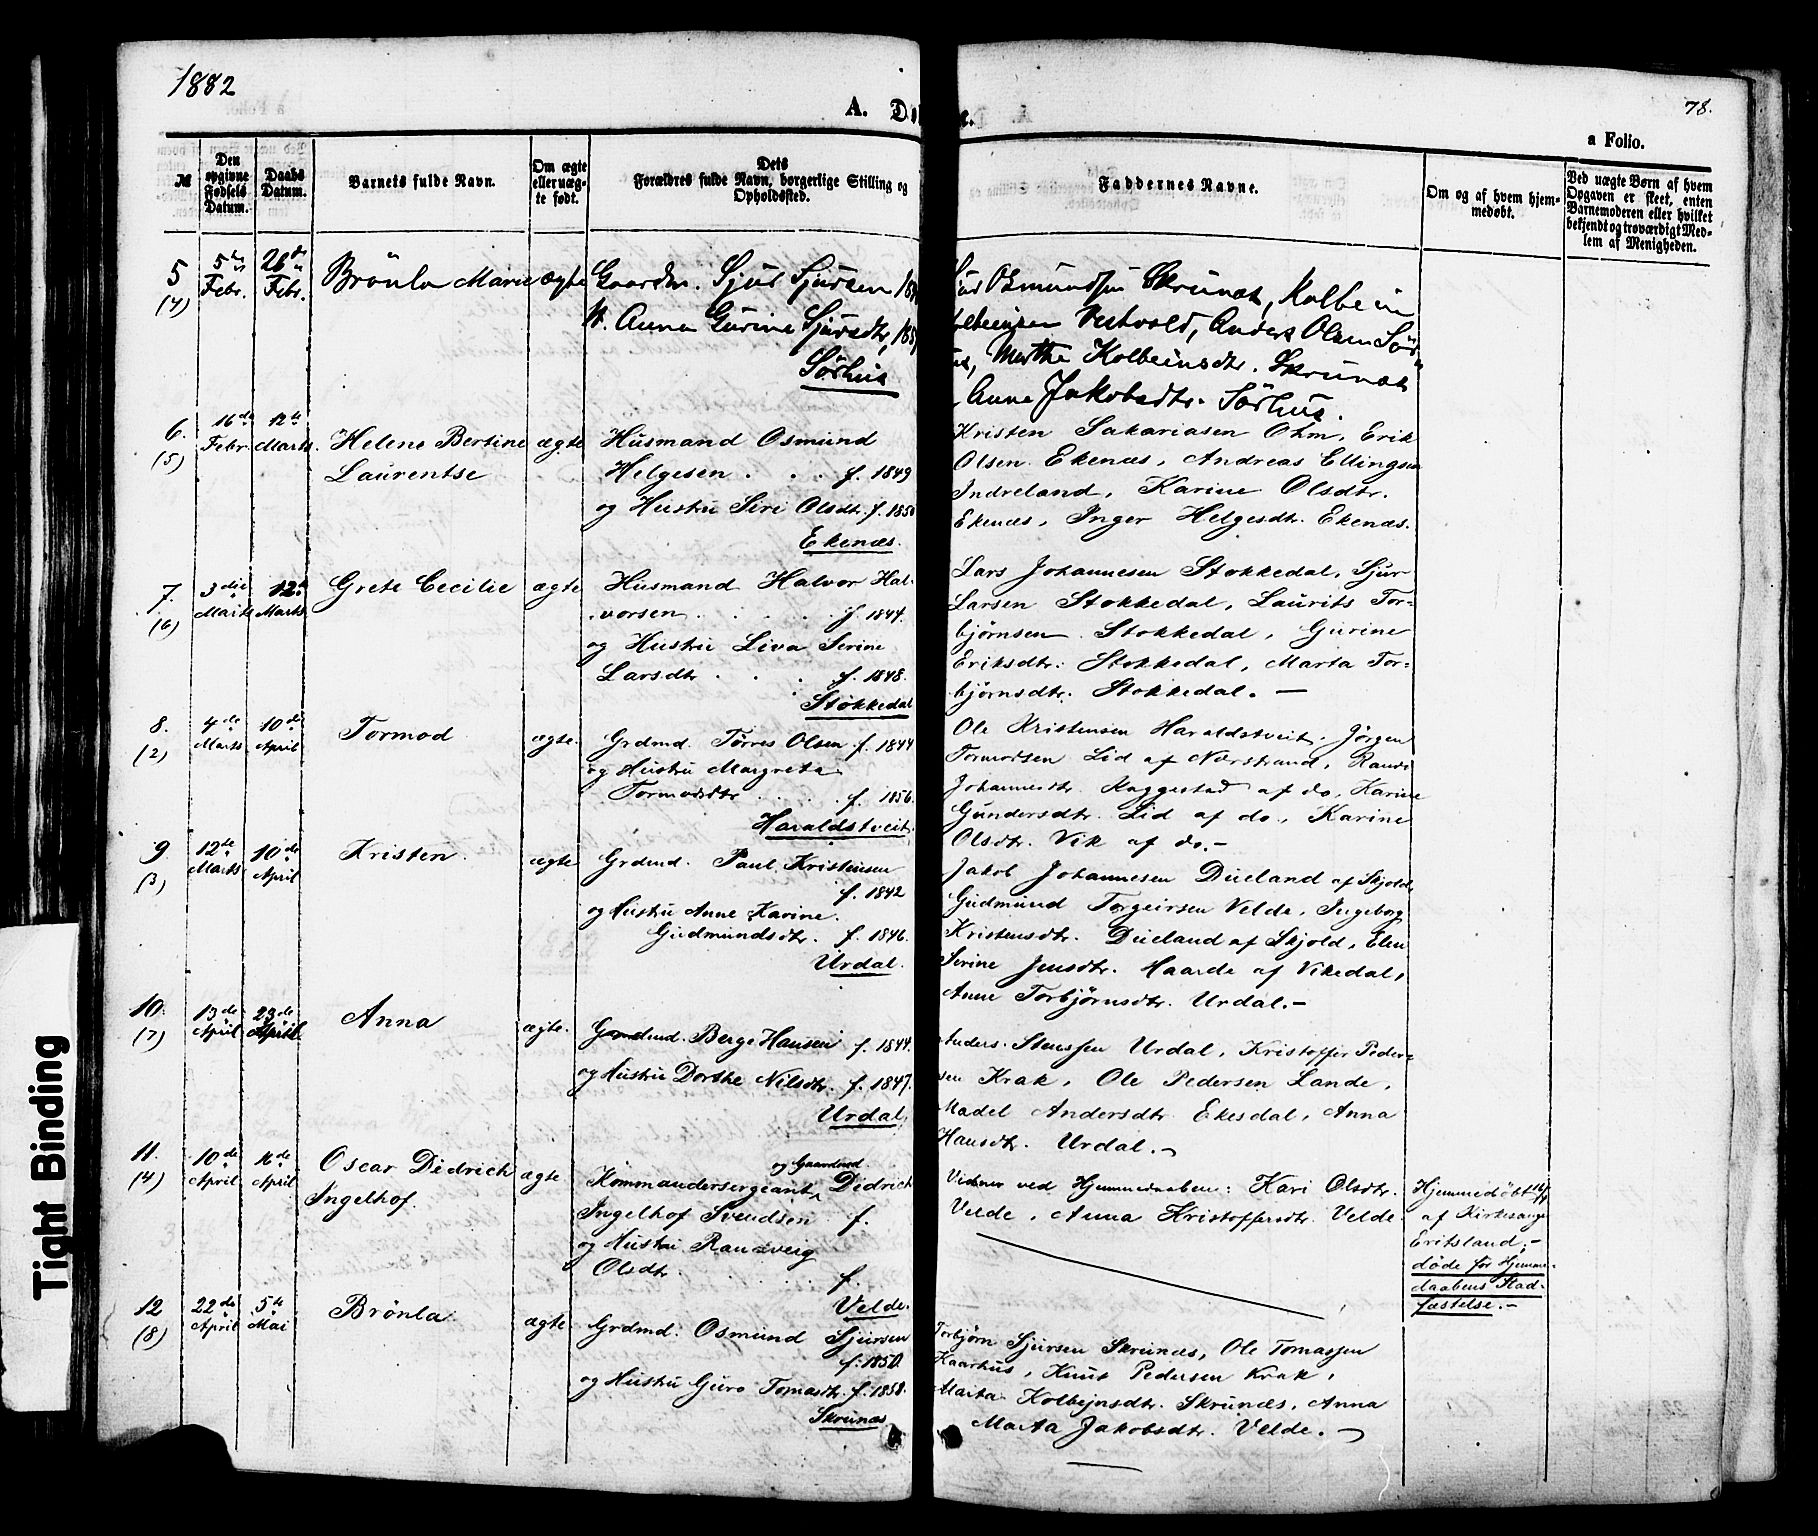 1882
A. D
78.
a Folio.
№
Den opgivne Fødsels Datum.
Daabs Datum.
Barnets fulde Navn.
Om ægte eller uæg-te født.
Dets Forældres fulde Navn, borgerlige Stilling og Opholdssted.
Faddernes Navne.
Om og af hvem hjem-medøbt.
Ved uægte Børn af hvem Opgaven er skeet, enten Barnemoderen eller hvilket bekjendt og troværdigt Med-lem af Menigheden.
5 (7)
5te Febr.
26de Febr.
Brönla Marie
ægte
Gaardm. Sjur Sjursen
H. Anna Gurine Sjursdtr,
Sörhus
Osmundsen Skrunæs, Kolbein
Vestvold, Anders Olsen Sör
Marthe Kolbeinsdtr. Skrunæs
Anne Jakobsdtr. Sörhus.
6. (5)
16de Febr.
12te Marts.
Helene Bertine
Laurentse
ægte
Husmand Osmund
Helgesen . . . f. 1849
og Hustru Siri Olsdtr. f. 1850
Ekenæs.
Kristen Sakariasen Ohm, Erik
Olsen Ekenæs, Andreas Ellingsen
Indreland, Karine Olsdtr.
Ekenæs, Inger Helgesdtr. Ekenæs.
7. (6)
3die Marts
12te Marts
Grete Cecilie
ægte
Husmand Halvor Hal-
vorsen . . . . f. 1844.
og Hustru Liva Serine
Larsdtr . . . f. 1848.
Stokkedal
Lars Johannesen Stokkedal, Sjur
Larsen Stokkedal, Laurits Tor-
bjørnsen Stokkedal, Gurine
Eriksdtr. Stokkedal, Marta Tor-
bjørnsdtr. Stokkedal. —
8. (2)
4de Marts
10de April
Tormod
ægte.
Grdmd. Tørres Olsen f. 1844
og Hustru Margreta
Tormodsdtr . . . . f. 1856.
Haraldstveit,
Ole Kristensen Haraldstveit, Jörgen
Tormodsen Lid af Nærstrand, Ranvei
Johannesdtr. Raggestad af do, Karine
Gundersdtr. Lid af do, Karine
Olsdtr. Vik af do. —
9 (3)
12te Marts
10de April
Kristen.
ægte
Grdmd. Paul Kristensen
f. 1842
og Hustru Anne Karine
Gudmundsdtr. f. 1846.
Urdal.
Jakob Johannesen Dueland af Skjold
Gudmund Torgeirsen Velde, Ingeborg
Kristensdtr. Dueland af Skjold, Elen
Serine Jensdtr. Haarde af Vikedal,
Anne Torbjörnsdtr. Urdal. —
10. (7)
13de April
23de April
Anna
ægte.
Grdmd. Berge Hansen f. 1844.
og Hustru Dorthe Nilsdtr. f. 1847.
Urdal,
Anders Stenssen Urdal, Kristoffer Peder-
sen Krak, Ole Pedersen Lande,
Madel Andersdtr Ekesdal, Anna
Hansdtr. Urdal. —
11. (4)
10de April
16de April
Oscar Didrich
Ingelhof.
ægte
og Gaardmd.
Kommandersergeant Didrich
Ingelhof Svendsen f.
og Hustru Ranveig
Olsdtr. . . . . . f.
Velde.
Vidner ved Hjemmedaaben: Kari Olsdtr.
Velde, Anna Kristoffersdtr. Velde.
Hjemmedöbt 16/4
af Kirkesang.
Eritsland, —
döde før Hjemme-
daabens Stad-
fæstelse. —
12 (8)
22de April
5te Mai
Brönla.
ægte
Grdmd. Osmund Sjursen
f. 1850.
og Hustru Guro Tomasdtr. f. 1858.
Skrunæs
Torbjörn Sjursen Skrunæs, Ole Tomassen
Kaarhus, Knut Pedersen Krak,
Marta Kolbejnsdtr. Skrunæs, Anna
Marta Jakobsdtr. Velde. —
Tight Binding